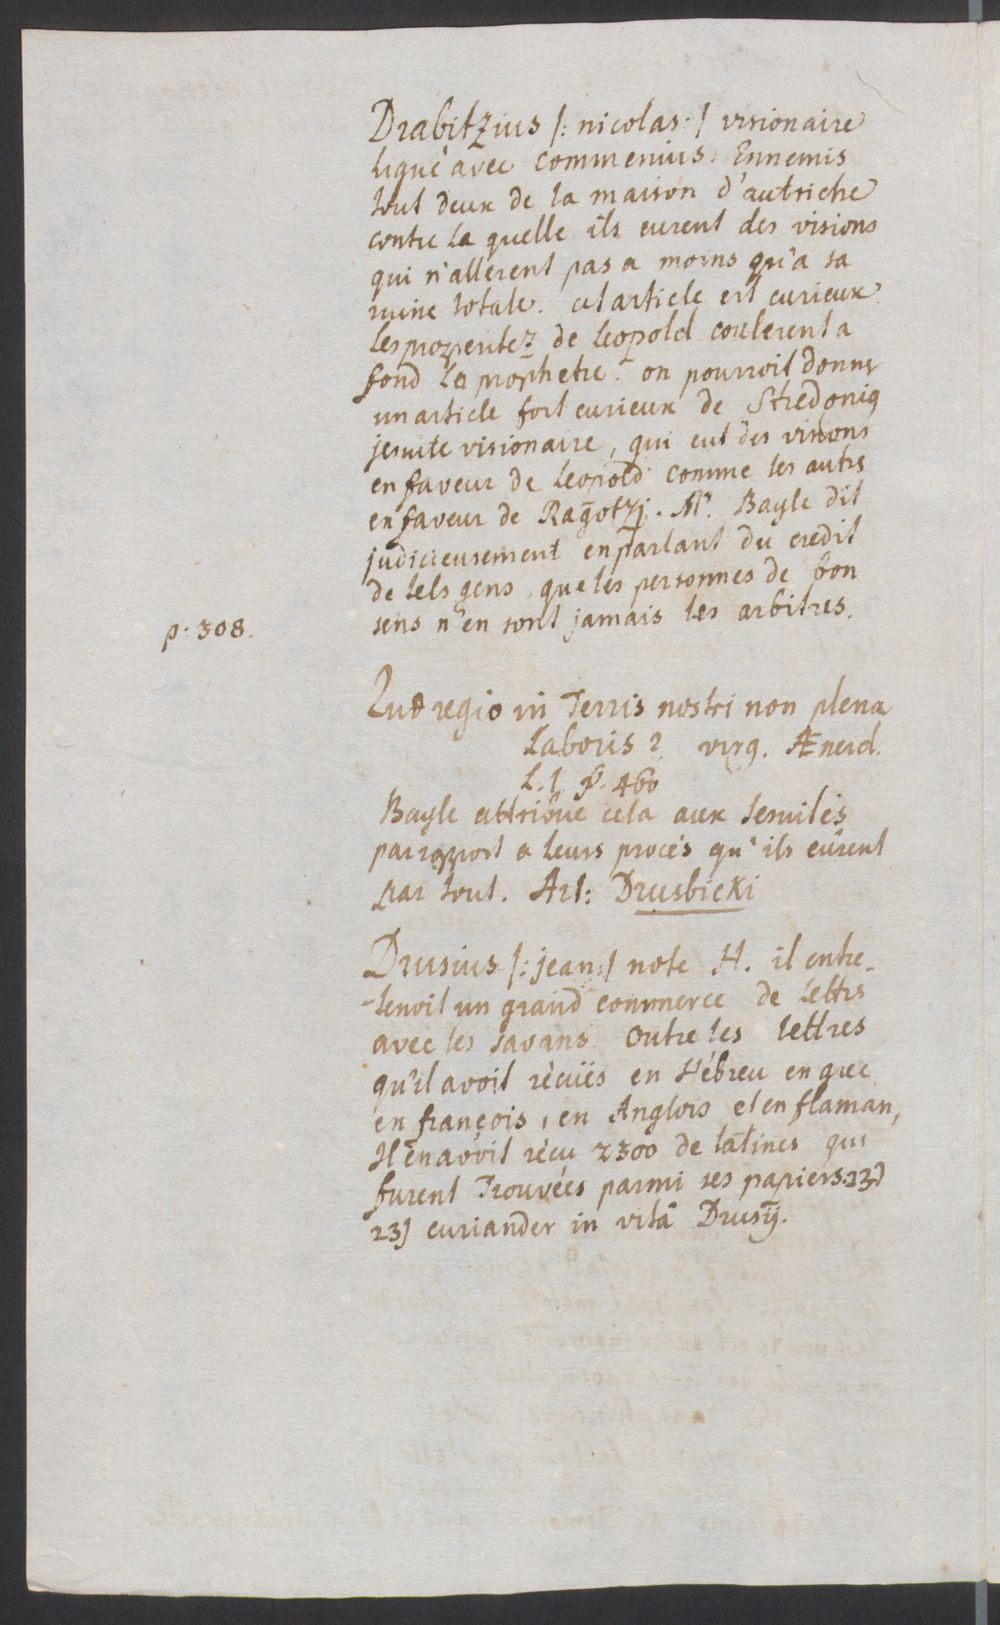 Drabitzius /: nicolas :/ visionaire
ligué avec commenius. Ennemis
tout deux de la maison d'autriche
contre la quelle ils eurent des visions
qui n'allerent pas a moins qu'a sa
ruine totale. cet article est curieux.
les prosperitez de leopold coulerent a
fond le prophetie. on pourroit donner
un article fort curieux de Stredoniq
jesuite visionaire, qui eut des visions
en faveur de leopold comme les autres
en faveur de Ragotzj. Mr. Bayle dit
judicieusement en parlant du credit
de tels gens, que les personnes de bon
sens n'en sont jamais les arbitres.
p: 308.
Quæ regio in Terris nostri non plena
Laboris? virg. Æneid.
L. 1. v. 460
Bayle attribue cela aux Jesuites
par rapport a leurs procés qu'ils eûrent
par tout. Art: Drusbicki
Drusius /: jean :/ note H. il entre-
-tenoit un grand commerce de lettres
avec les savans. Outre les lettres
qu'il avoit récuës en Hébreu en grec
en françois, en Anglois et en flaman,
Il en avoit récu 2300 de latines qui
furent Trouvées parmi ses papiers. 23)
23) curiander in vitâ Drusij.